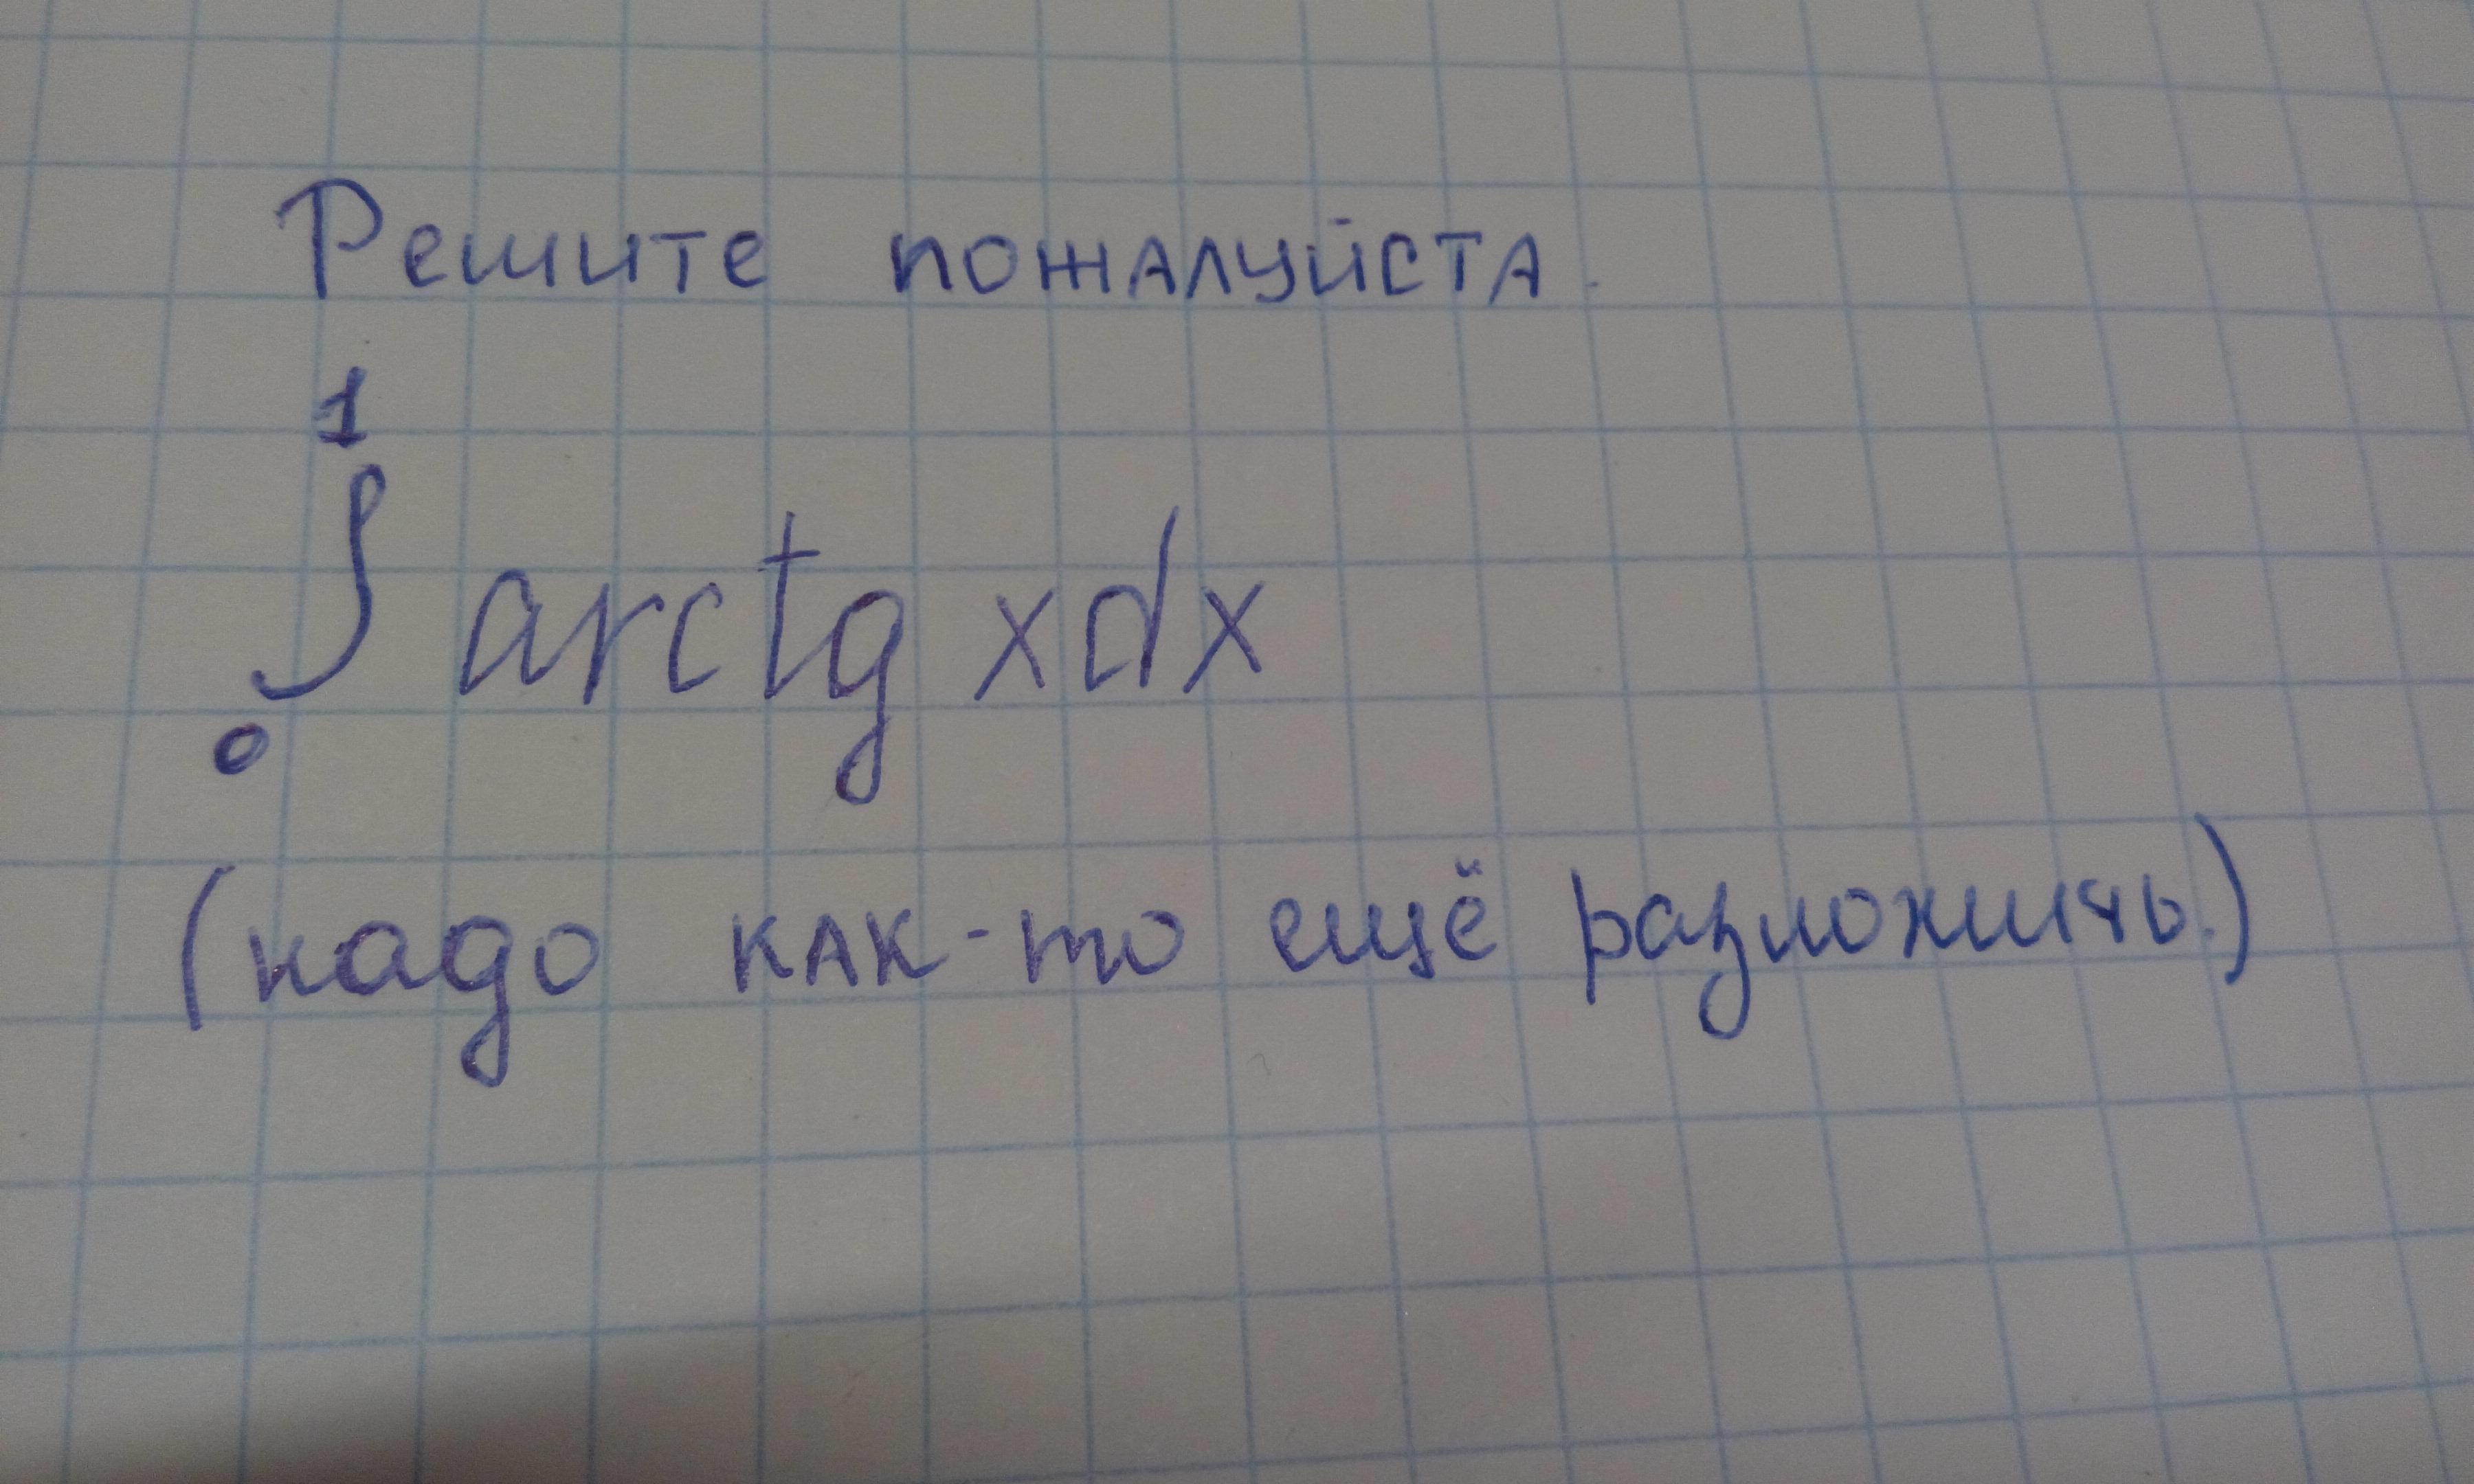 Решите пожалуйста.
1
∫ arctg x dx
0
(надо как-то ещё разложить.)